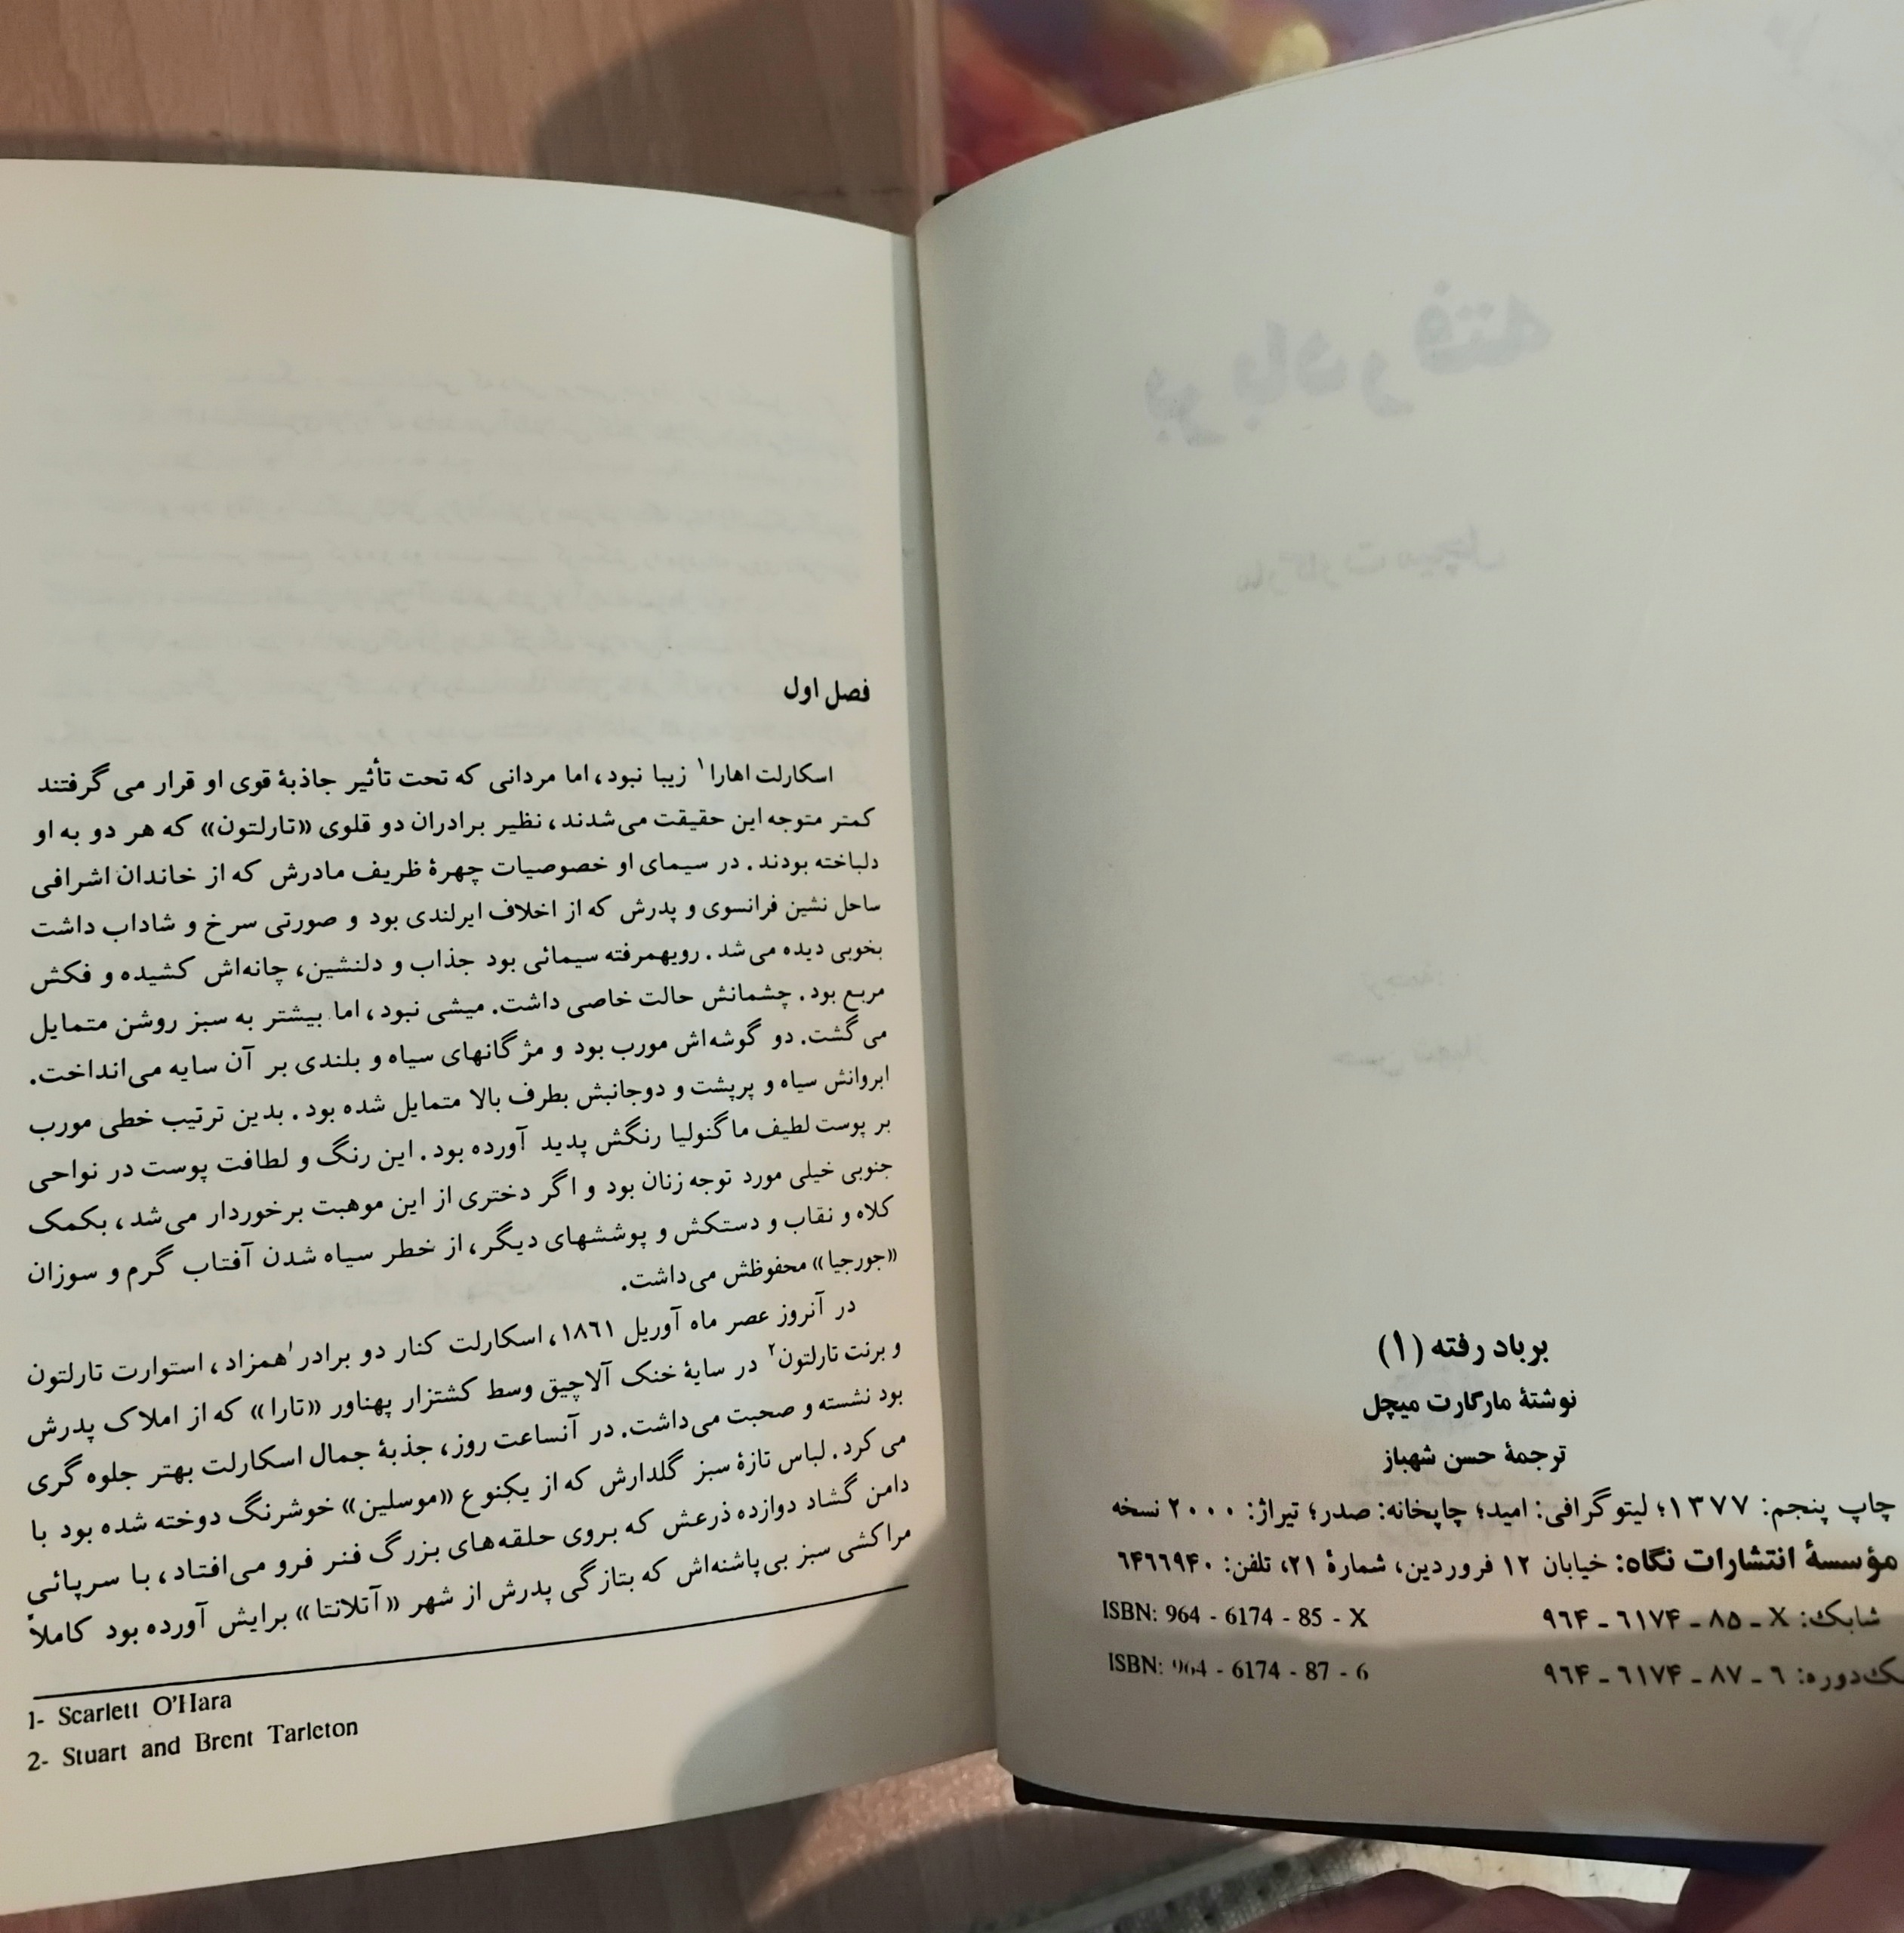 برباد رفته (۱)
نوشتهٔ مارگارت میچل
ترجمهٔ حسن شهباز
چاپ پنجم: ۱۳۷۷؛ لیتوگرافی: امید؛ چاپخانه: صدر؛ تیراژ: ۲۰۰۰ نسخه
مؤسسهٔ انتشارات نگاه: خیابان ۱۲ فروردین، شمارهٔ ۲۱، تلفن: ۶۴۶۶۹۴۰
شابک: X ـ ۸۵ ـ ۶۱۷۴ ـ ۹۶۴ ISBN: 964 - 6174 - 85 - X
دوره: ۶ ـ ۸۷ ـ ۶۱۷۴ ـ ۹۶۴ ISBN: 964 - 6174 - 87 - 6
فصل اول
اسکارلت اهارا۱ زیبا نبود، اما مردانی که تحت تأثیر جاذبهٔ قوی او قرار می گرفتند
کمتر متوجه این حقیقت می‌شدند، نظیر برادران دو قلوی «تارلتون» که هر دو به او
دلباخته بودند. در سیمای او خصوصیات چهرهٔ ظریف مادرش که از خاندان اشرافی
ساحل نشین فرانسوی و پدرش که از اخلاف ایرلندی بود و صورتی سرخ و شاداب داشت
بخوبی دیده می‌شد. رویهمرفته سیمائی بود جذاب و دلنشین، چانه‌اش کشیده و فکش
مربع بود. چشمانش حالت خاصی داشت. میشی نبود، اما بیشتر به سبز روشن متمایل
می گشت. دو گوشه‌اش مورب بود و مژگانهای سیاه و بلندی بر آن سایه می‌انداخت.
ابروانش سیاه و پرپشت و دوجانبش بطرف بالا متمایل شده بود. بدین ترتیب خطی مورب
بر پوست لطیف ماگنولیا رنگش پدید آورده بود. این رنگ و لطافت پوست در نواحی
جنوبی خیلی مورد توجه زنان بود و اگر دختری از این موهبت برخوردار می‌شد، بکمک
کلاه و نقاب و دستکش و پوششهای دیگر، از خطر سیاه شدن آفتاب گرم و سوزان
«جورجیا» محفوظش می‌داشت.
در آنروز عصر ماه آوریل ۱۸۶۱، اسکارلت کنار دو برادر همزاد، استوارت تارلتون
و برنت تارلتون۲ در سایهٔ خنک آلاچیق وسط کشتزار پهناور «تارا» که از املاک پدرش
بود نشسته و صحبت می‌داشت. در آنساعت روز، جذبهٔ جمال اسکارلت بهتر جلوه گری
می کرد. لباس تازهٔ سبز گلدارش که از یکنوع «موسلین» خوشرنگ دوخته شده بود با
دامن گشاد دوازده ذرعش که بروی حلقه‌های بزرگ فنر فرو می‌افتاد، با سرپائی
مراکشی سبز بی‌پاشنه‌اش که بتازگی پدرش از شهر «آتلانتا» برایش آورده بود کاملاً
1- Scarlett O'Hara
2- Stuart and Brent Tarleton